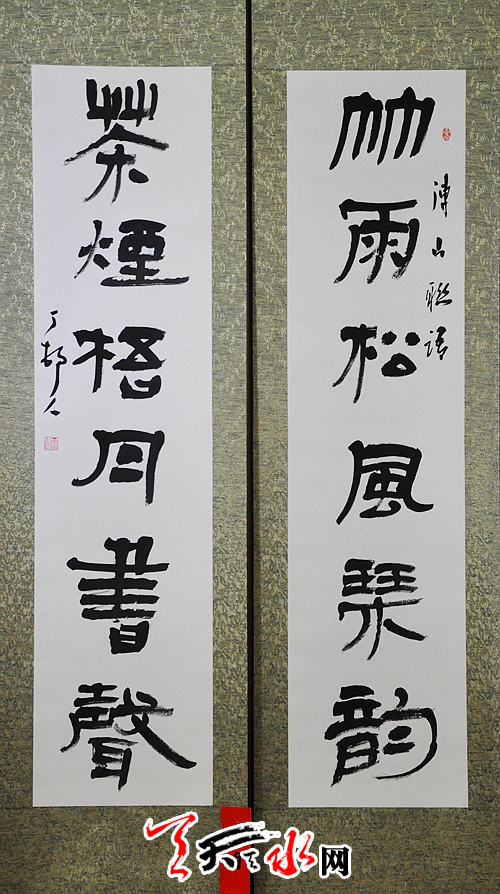 竹雨松風琴韵
傅山聯語
茶煙梧月書聲
天天天水网